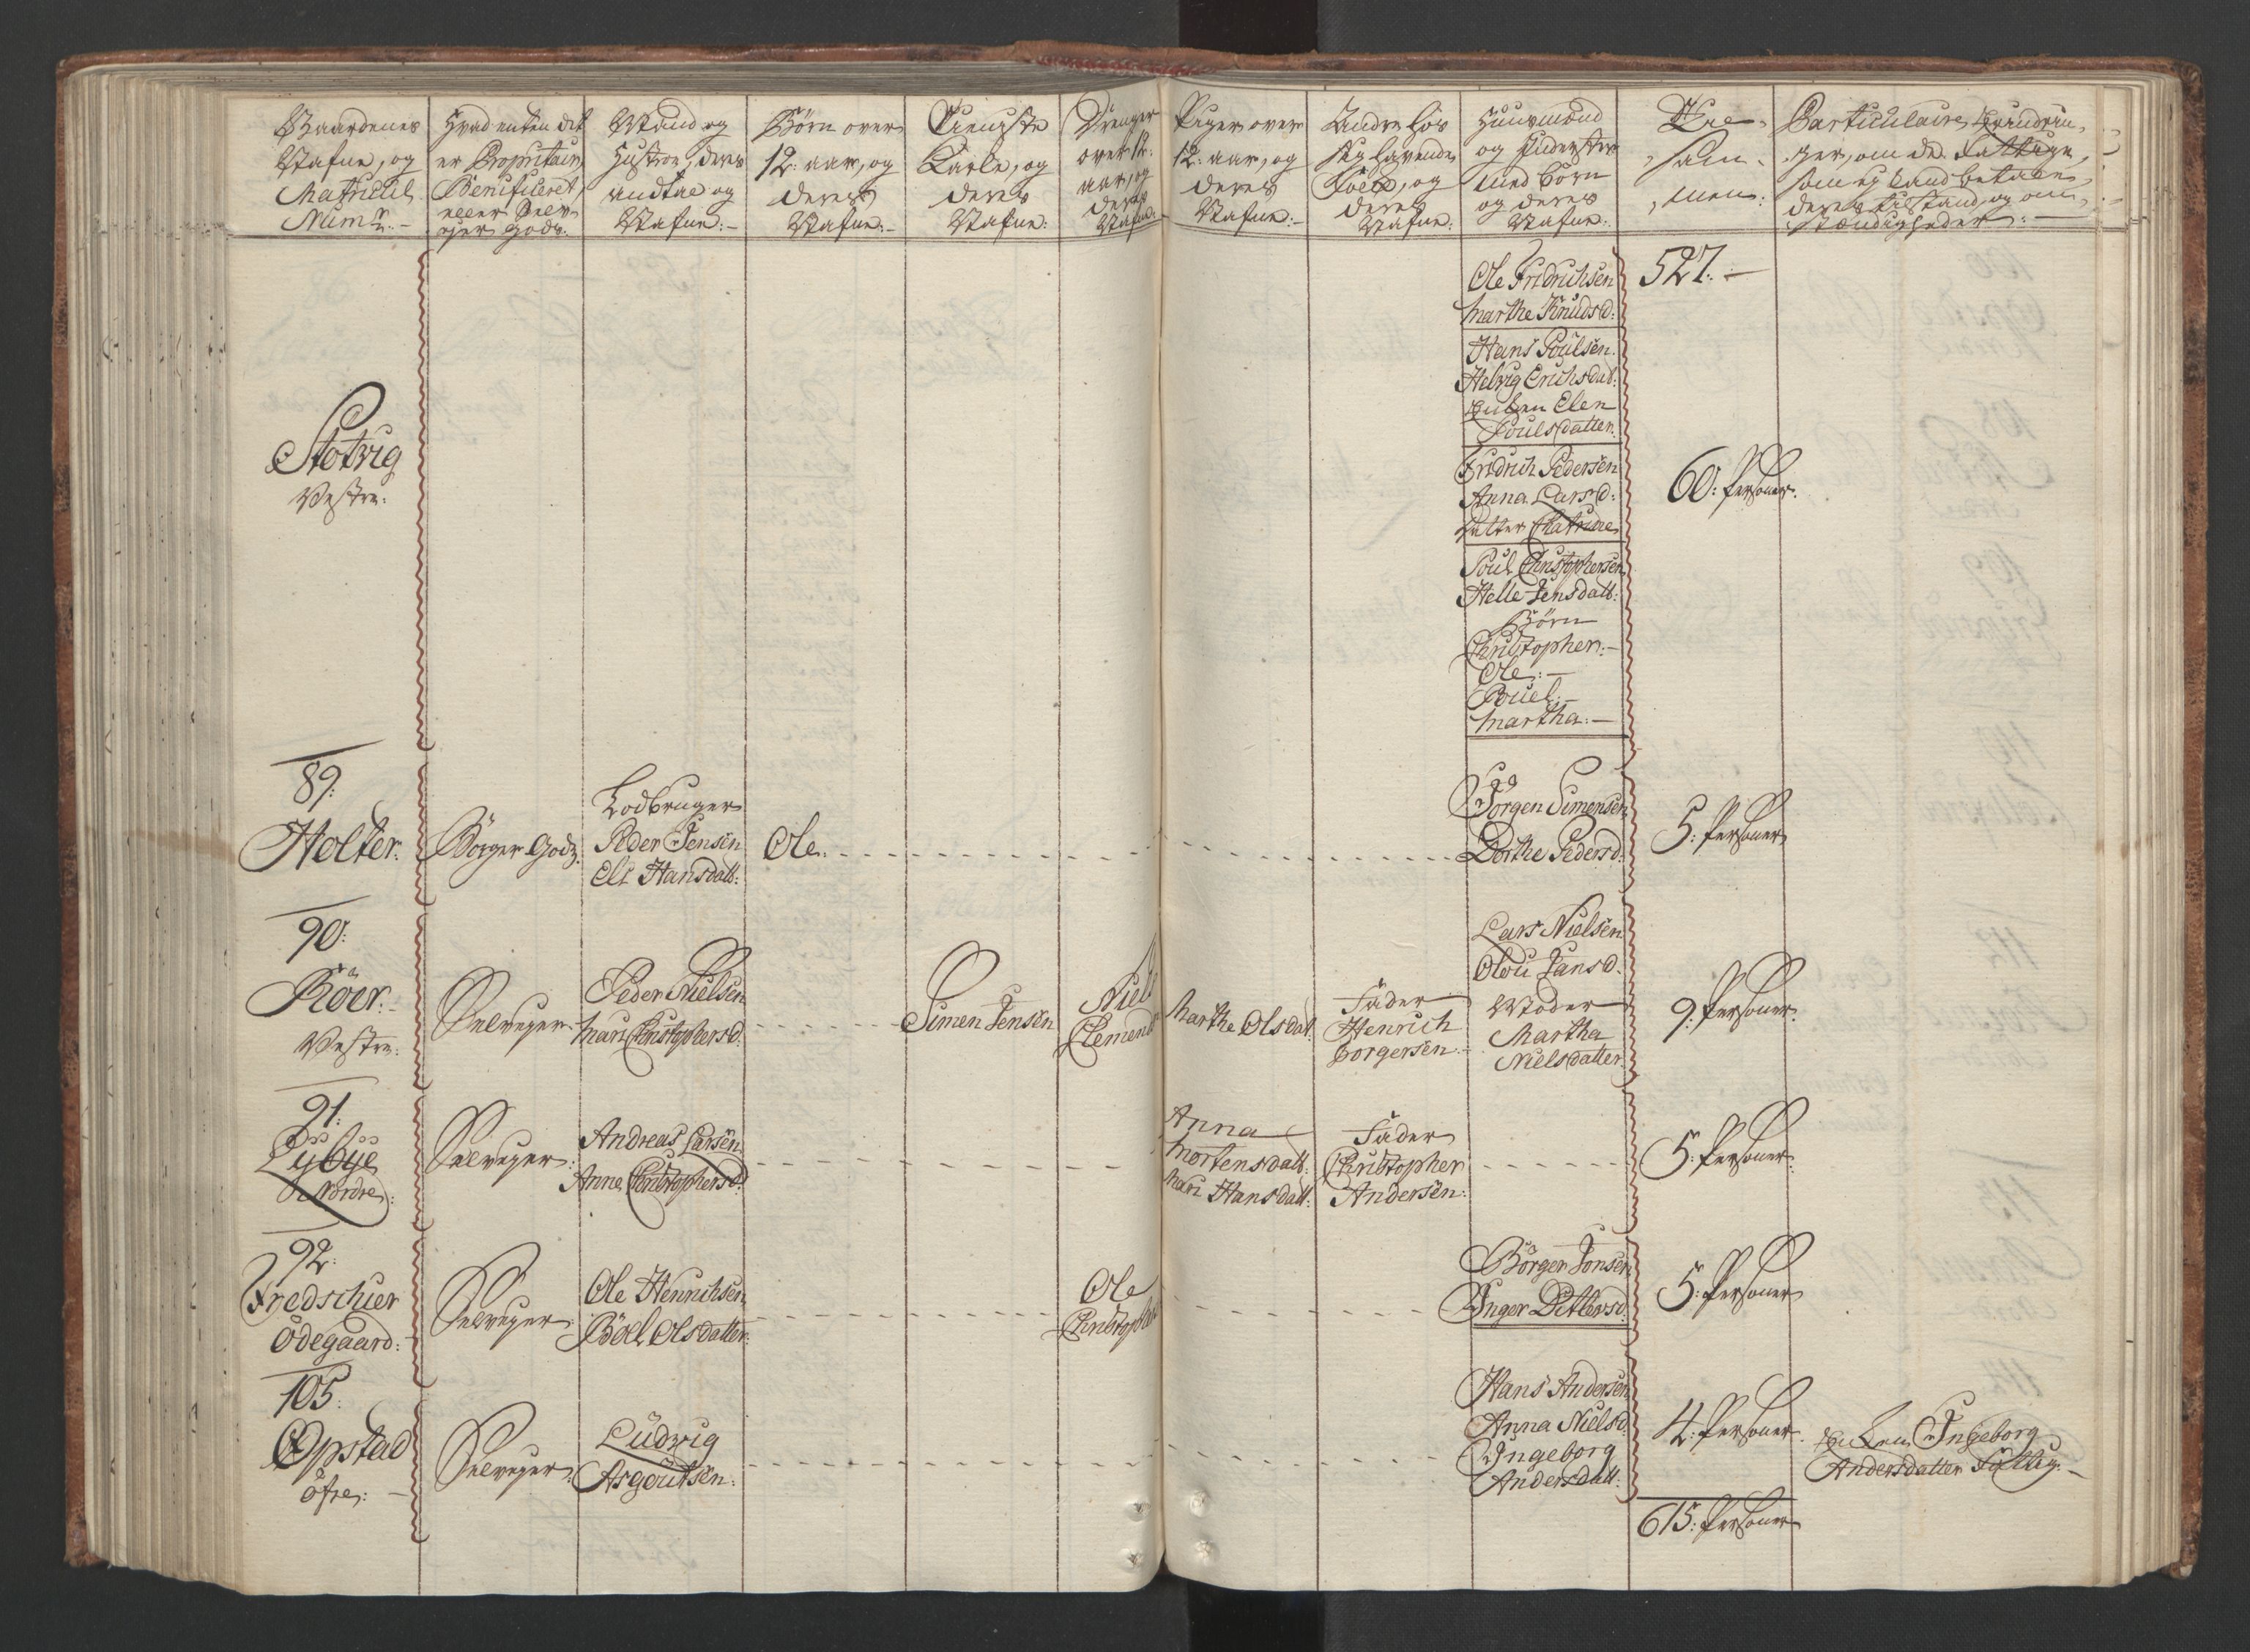 Gaardenes
Nafne, og
Matricul
Num:r.-
Hvad enten det
er Proprietair
Beneficeret,
eller Selv-
ejer Gods.
Mænd og
Hustroe, deres
andtal og
Nafne:-
Börn over
12: aar, og
deres
Nafne:-
Tieniste
Karle, og
deres
Nafne:
Drenger
over 12:
aar, og
deres
Nafne:
Piger over
12: aar, og
deres
Nafne:-
Andre hos
sig havende
Folck, og
deres
Nafne:
Huusmænd
og Inderster
med börn
og deres
Nafne:
Til-
sam-
men:
Particulaire
ger, om de fattige,
som ej kand betale,
deres tilstand og om-
stændigheder:-
Stotvig
Vestre:
Ole Fridrichsen
Marthe Knudsd:
Hans Poulsen.
Helvig Erichsdat:
Enken Elen
Poulsdatter.
Fridrich Pedersen
Anna Larsd:
datter Chatrine
Poul Christophersen
Helle Jensdatt:
Börn
Christopher:-
Ole:-
Bouel:-
Martha:-
527:-
60: Personer.
89:
Holter.
Börger Godz.
Lodbruger
Peder Jensen
Eli Hansdatt:
Ole.
Jörgen Simensen
Dorthe Pedersd:
5: Personer
90:
Röer.-
Vestre:
Selvejer.
Peder Nielsen
Mari Christophersd:
Simen Jensen
Niels
Clements
Marthe Olsdat.
Fader
Henrich
Borgersen.-
Lars Nielsen
Olou Jansd.
Moder
Martha
Nielsdatter.
9: Personer.
91:
Lybye
Nordre:
Selvejer:
Andreas Larsen
Anne Christophersd:
Anna
Mortensdatt:
Mari Hansdatt:
Fader
Christopher
Andersen:
5: Personer:
92:
Fredschier
Ödegaard:
Selvejer:
Ole Henrichsen
Böel Olsdatter:
Ole
Christoph
Börger Jonsen
Inger Detlevsd:
5: Personer
105:
Opstad
öfre:-
Selvejer:
Ludvig
Asgoutsen:
Hans Andersen
Anna Nielsd:
Ingeborg
Andersdatt:
4: Personer.
Enken Ingeborg
Andersdatter Fattig.-
615: Personer